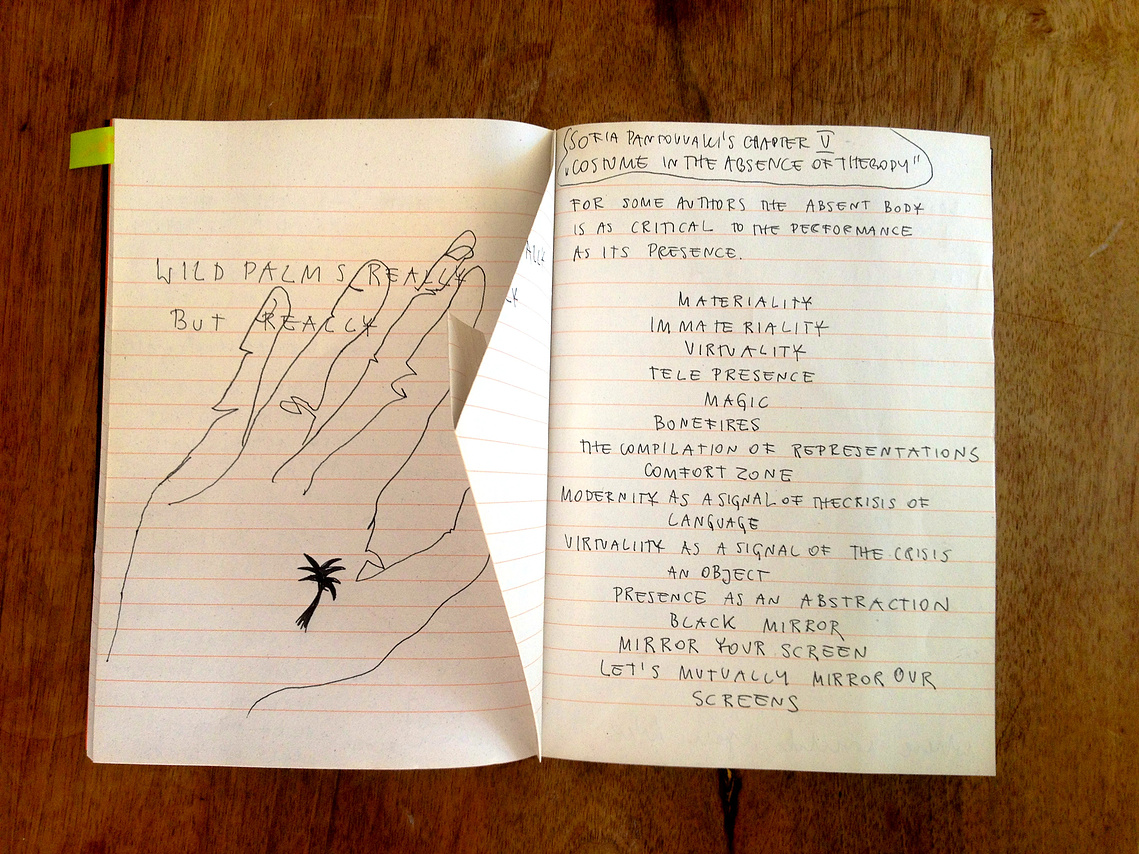 WILD PALMS REALLY
BUT REALLY
SOFIA PANTOUVAKI'S CHAPTER V
"COSTUME IN THE ABSENCE OF THE BODY"
FOR SOME AUTHORS THE ABSENT BODY
IS AS CRITICAL TO THE PERFORMANCE
AS ITS PRESENCE.
MATERIALITY
IMMATERIALITY
VIRTUALITY
TELE PRESENCE
MAGIC
BONEFIRES
THE COMPILATION OF REPRESENTATIONS
COMFORT ZONE
MODERNITY AS A SIGNAL OF THE CRISIS OF
LANGUAGE
VIRTUALITY AS A SIGNAL OF THE CRISIS
AN OBJECT
PRESENCE AS AN ABSTRACTION
BLACK MIRROR
MIRROR YOUR SCREEN
LET'S MUTUALLY MIRROR OUR
SCREENS